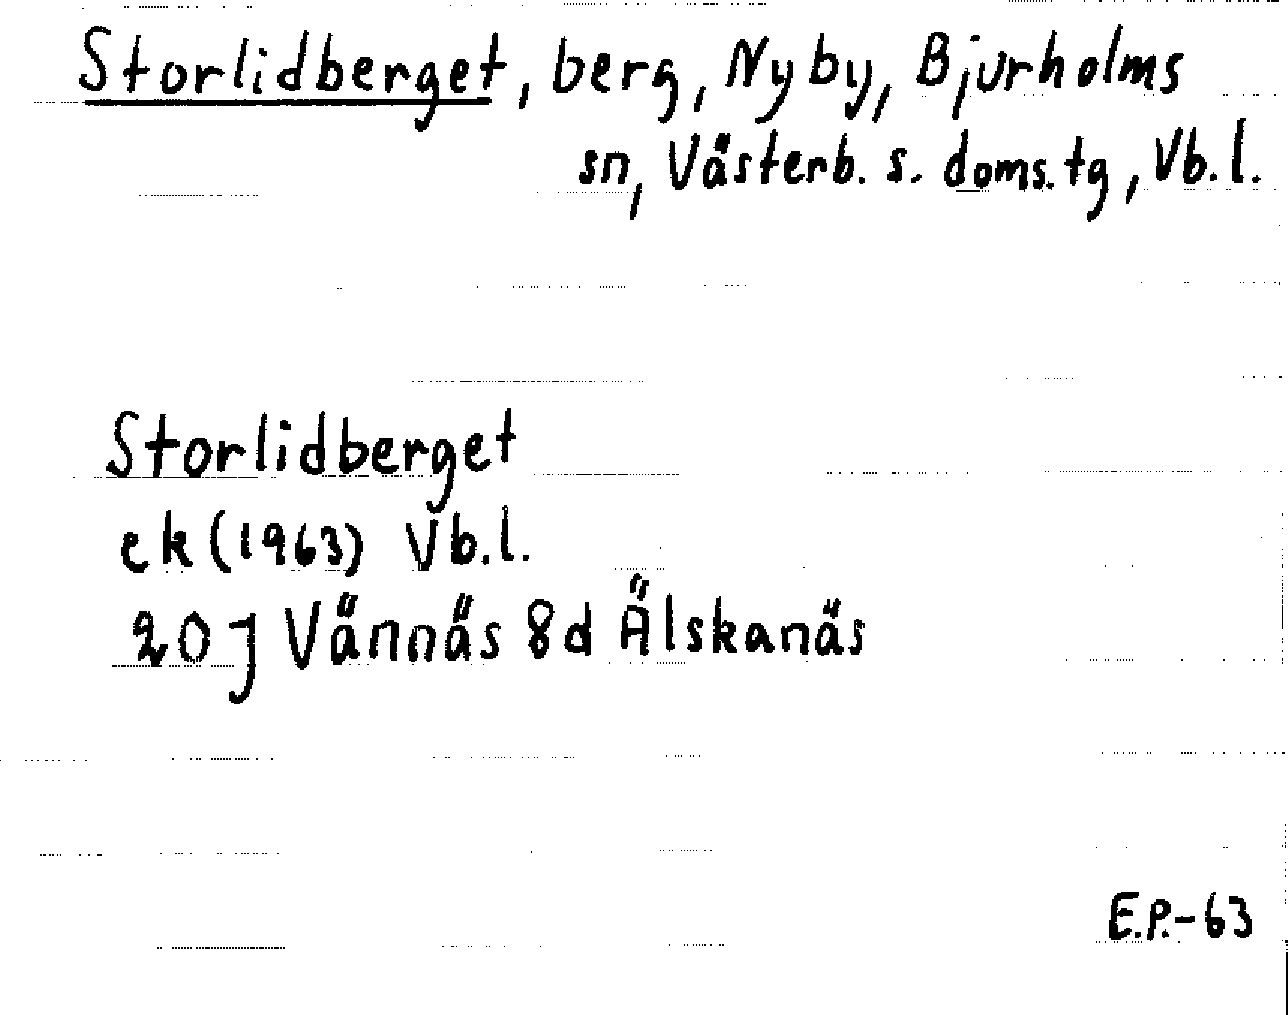 Storlidberget, berg, Nyby, Bjurholms
sn, Västerb. s. doms.tg, Vb.l.
Storlidberget
ek (1963) Vb.l.
20 J Vännäs 8d Älskanäs
E.P.-63